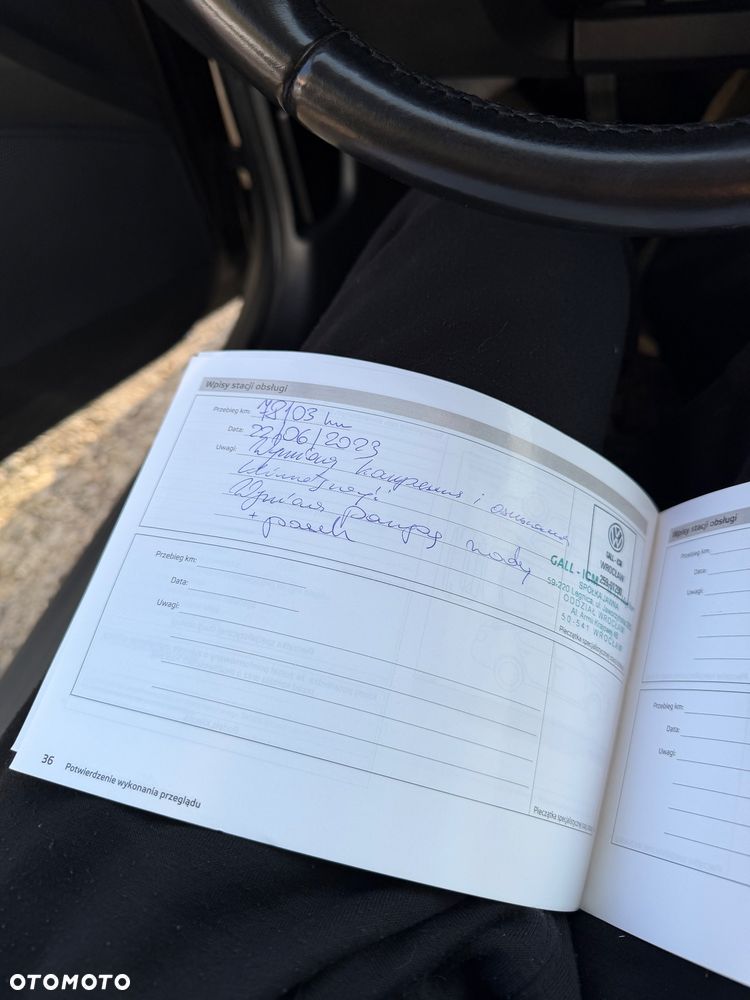 Wpisy stacji obsługi
Przebieg km: 78103 km
Data: 22/06/2023
Uwagi: Wymiana kompresora i osuszacza
klimatyzacji
Wymiana pompy wody
+ pasek
GALL - ICM
WROCŁAW
GALL - ICM
SPÓŁKA JAWNA
59-220 Legnica, ul.
ODDZIAŁ WROCŁAW
Al. Armii Krajowej
50-541 WROCŁAW
Pieczątka specjalistycznej
Przebieg km:
Data:
Uwagi:
Pieczątka specjalistycznej
36 Potwierdzenie wykonania przeglądu
Wpisy stacji obsługi
Przebieg km:
Data:
Uwagi:
Przebieg km:
Data:
Uwagi:
OTOMOTO